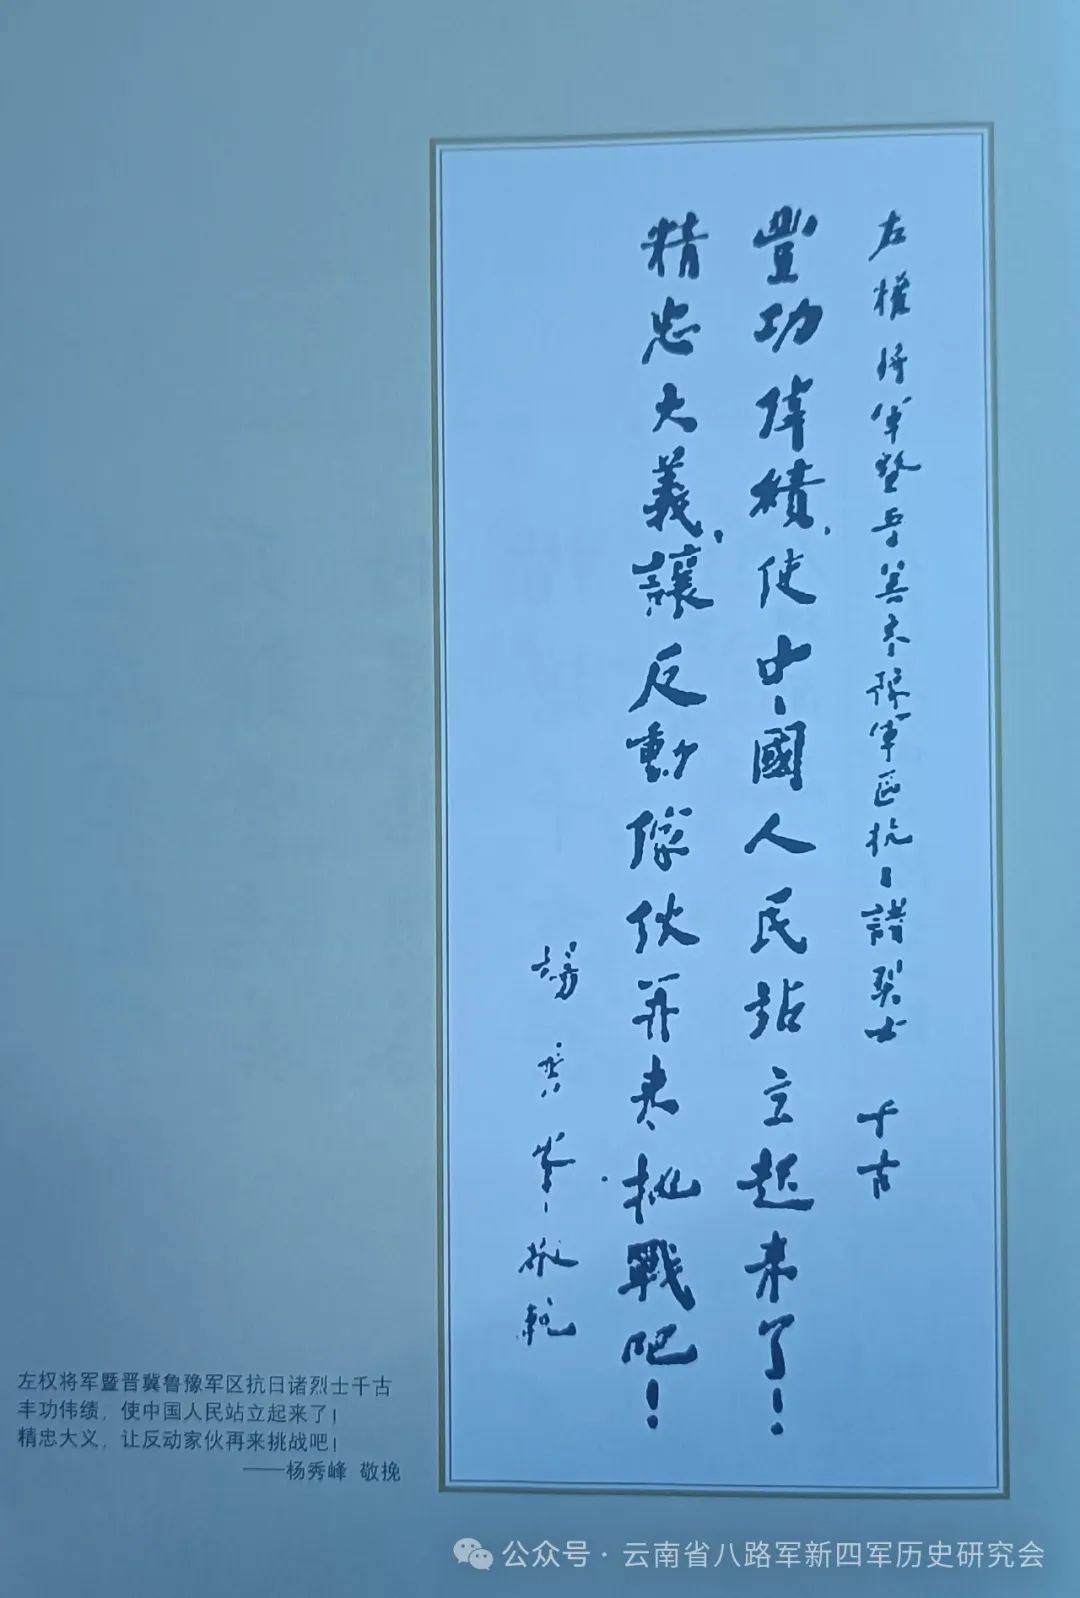 左權将军暨晋冀鲁豫军区抗日諸烈士 千古
豐功偉績,使中國人民站立起来了！
精忠大義,讓反動傢伙再来挑戰吧！
楊秀峯敬輓
左权将军暨晋冀鲁豫军区抗日诸烈士千古
丰功伟绩，使中国人民站立起来了！
精忠大义，让反动家伙再来挑战吧！
——杨秀峰 敬挽
公众号·云南省八路军新四军历史研究会